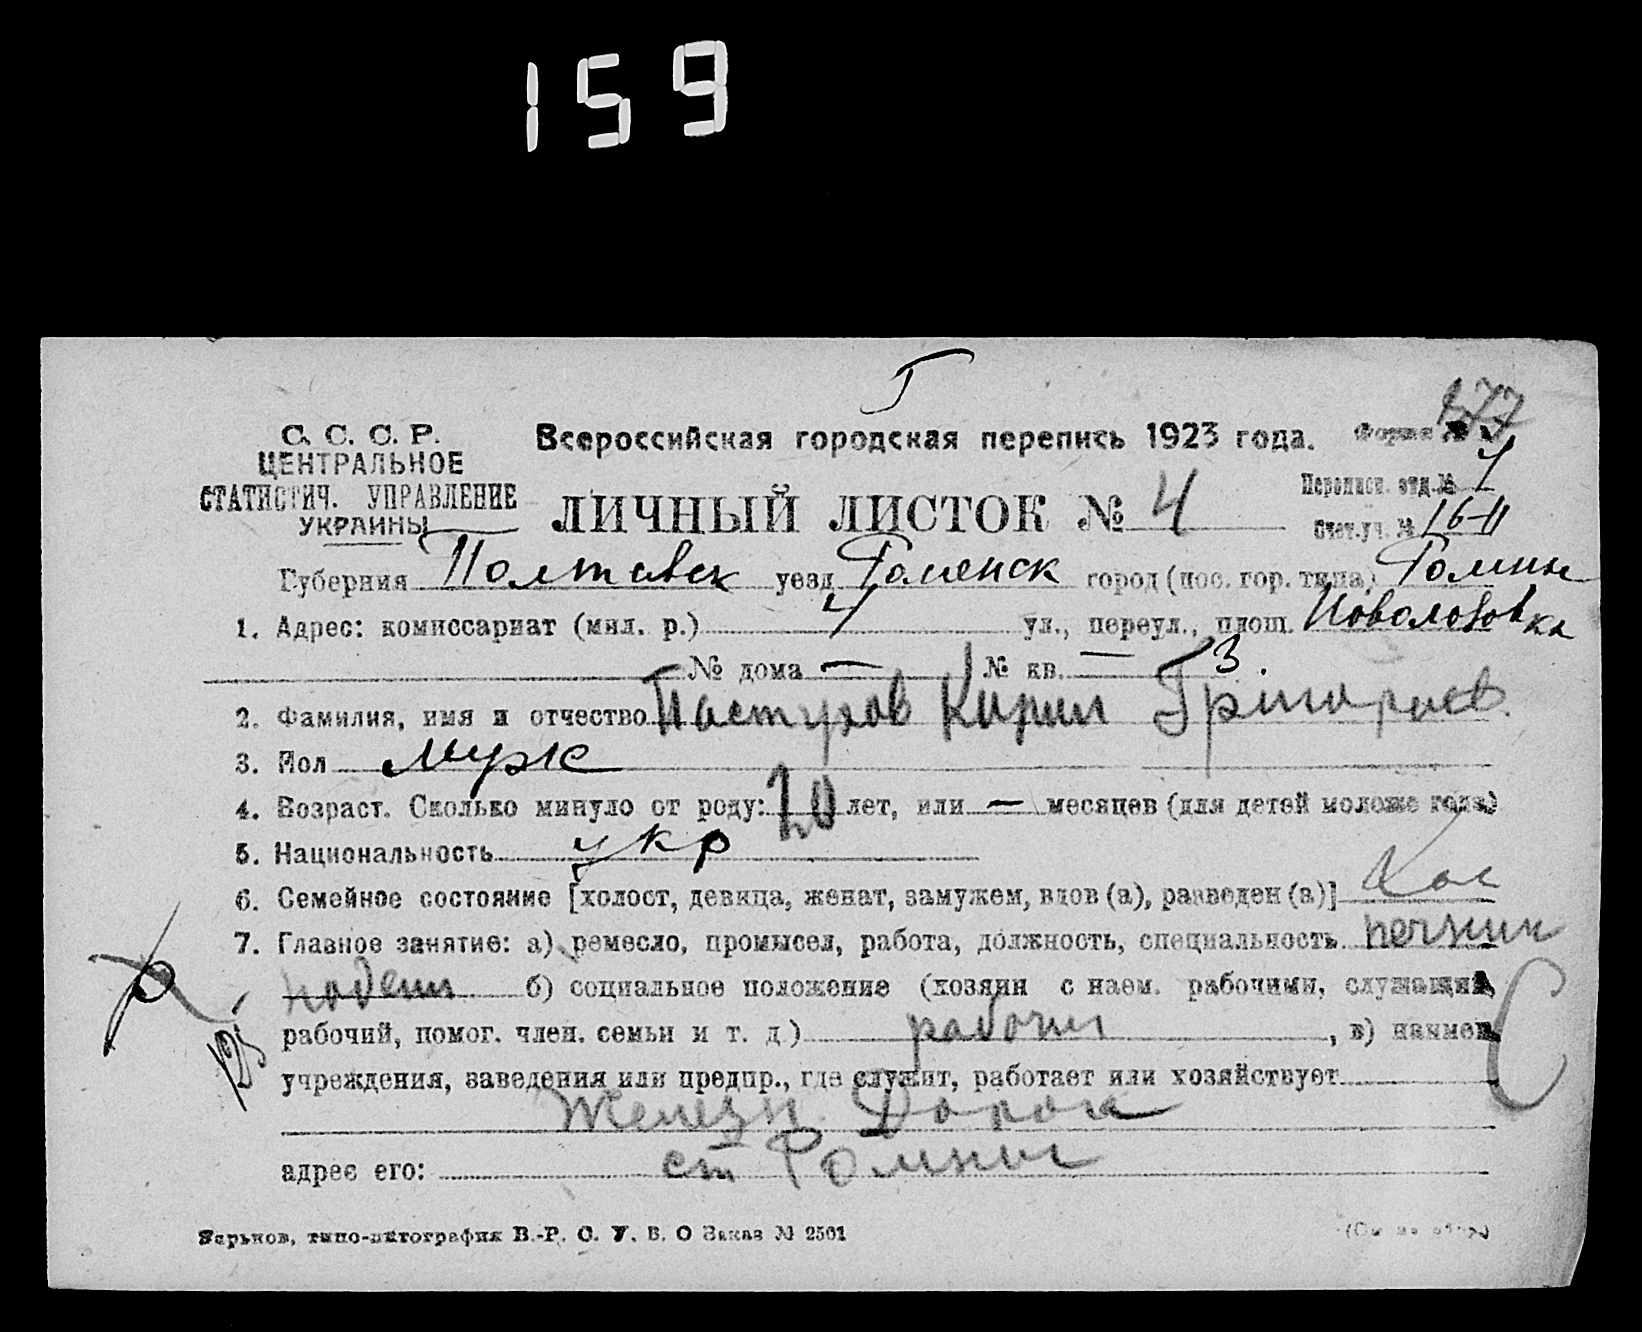 159
Г
177
С. С. С. Р.
ЦЕНТРАЛЬНОЕ
СТАТИСТИЧ. УПРАВЛЕНИЕ
УКРАИНЫ
Всероссийская городская перепись 1923 года.
Форма №
ЛИЧНЫЙ ЛИСТОК № 4
Переписн. отд. №
Счет.уч. № 16-11
Губерния Полтавск уезд Роменск город (пос. гор. типа) Ромны
1. Адрес: комиссариат (мил. р.) 4 ул., переул., площ. Новолозовка
№ дома — № кв. — 3.
2. Фамилия, имя и отчество Пастухов Кирил Григораев.
3. Пол муж
4. Возраст. Сколько минуло от роду: 20 лет, или — месяцев (для детей моложе года)
5. Национальность укр
6. Семейное состояние [холост, девица, женат, замужем, вдов (а), разведен (а)] Хол
7. Главное занятие: а) ремесло, промысел, работа, должность, специальность
б) социальное положение (хозяин с наем. рабочими, служащий,
рабочий, помог. член. семьи и т. д.) рабочий, в) наимен.
учреждения, заведения или предпр., где служит, работает или хозяйствует
Железн Дорога
адрес его: ст Ромны
Р
125
С
Харьков, типо-литография В.-Р. С. У. В. О Заказ № 2561
(См на обор.)